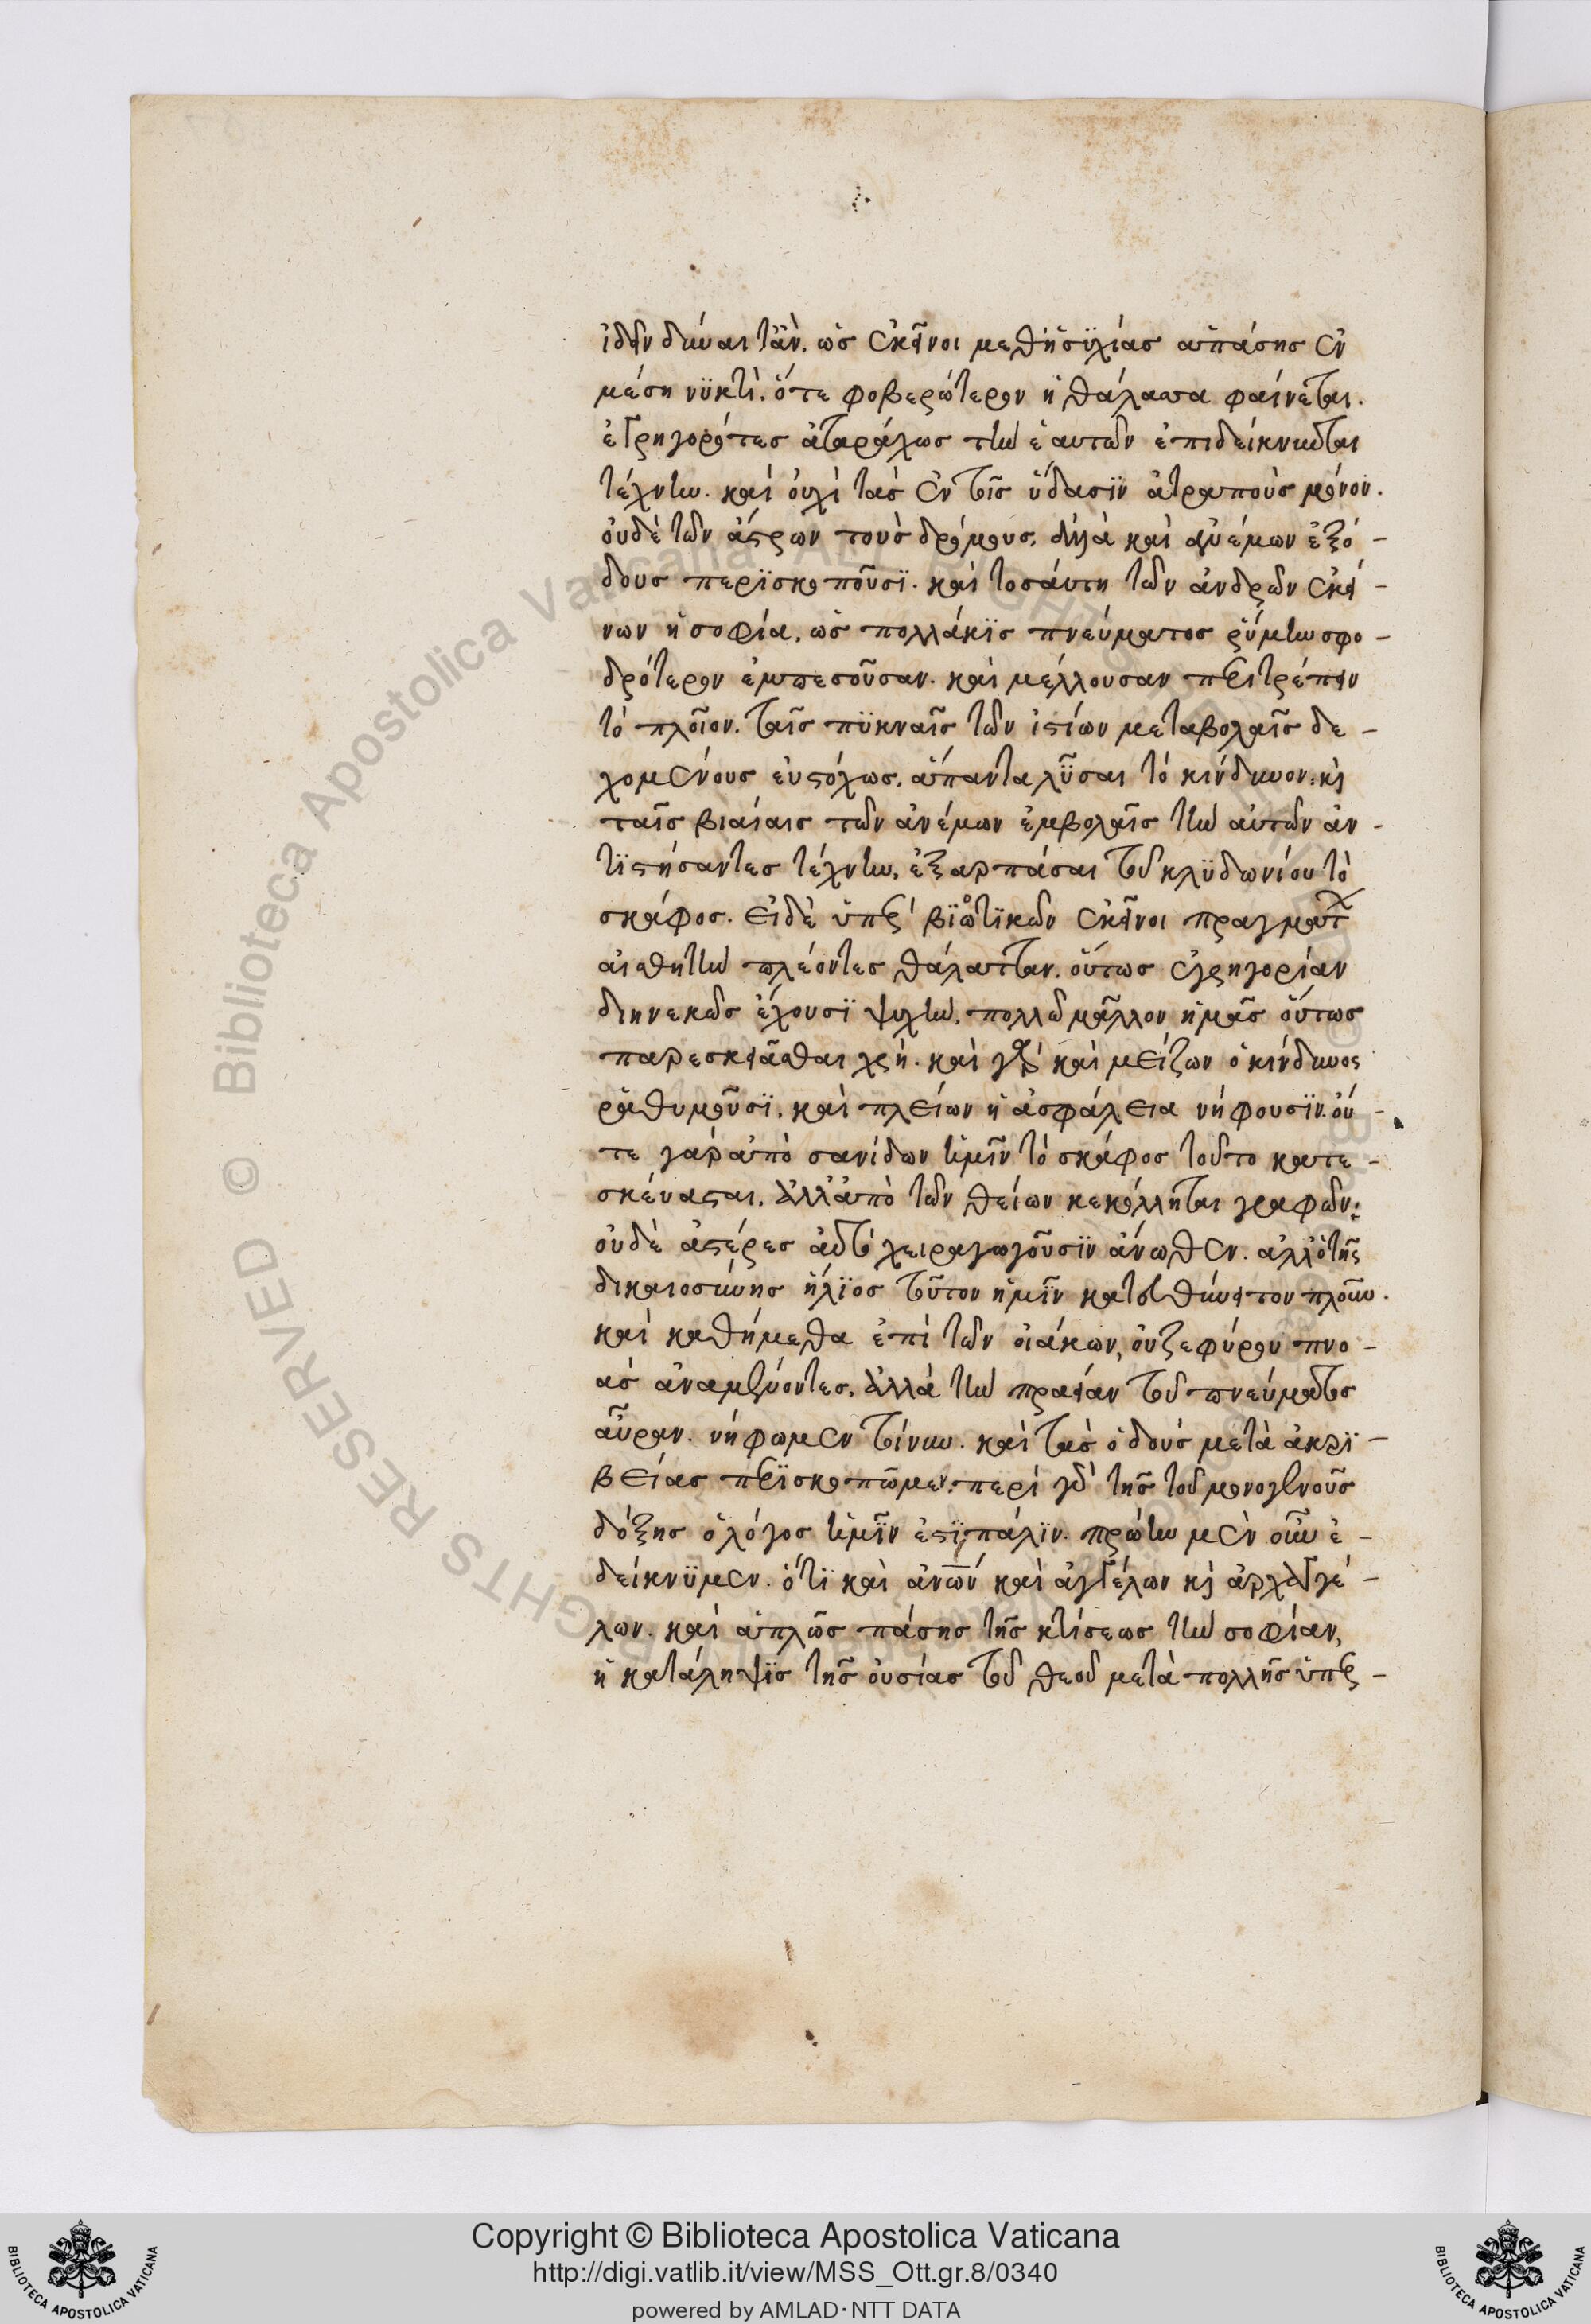 ἰδεῖν δύναιτ' ἄν. ὡς ἐκεῖνοι μεθ' ἡσϋχίας ἁπάσης ἐν
μέση νϋκτὶ. ὅτε φοβερώτερον ἡ θάλασσα φαίνεται.
ἐγρηγορότες ἀταράχως τὴν ἑαυτῶν ἐπιδείκνυνται
τέχνην. καὶ οὐχὶ τὰς ἐν τοῖς ὕδασϊν ἀτραποὺς μόνον.
οὐδὲ τῶν ἄστρων τοὺς δρόμους. ἀλλὰ καὶ ἀνέμων ἐξό-
δους περϊσκοποῦσϊ. καὶ τοσάυτη τῶν ἀνδρῶν ἐκεί-
νων ἡ σοφία. ὡς πολλάκϊς πνεύματος ῥύμην σφο-
δρότερον ἐμπεσοῦσαν. καὶ μέλλουσαν περιτρέπειν
τὸ πλοῖον. ταῖς πϋκναῖς τῶν ἱστίων μεταβολαῖς δε-
χομένους εὐστόχως. ἅπαντα λῦσαι τὸ κίνδυνον. κὶ
ταῖς βιαίαις τῶν ἀνέμων ἐμβολαῖς τὴν αὐτῶν ἀν-
τϊστήσαντες τέχνην. ἐξαρπάσαι τοῦ κλϋδωνίου τὸ
σκάφος. εἰ δὲ ὑπὲρ βϊωτϊκῶν ἐκεῖνοι πραγμάτων
αἰσθητὴν πλέοντες θάλατταν. οὕτως ἐγρηγορίαν
διηνεκῶς ἔχουσϊ ψυχὴν. πολλῶ μᾶλλον ἡμᾶς οὕτως
παρεσκευᾶσθαι χρή. καὶ γὰρ καὶ μείζων ὁ κίνδυνος
ῥαθυμοῦσϊ. καὶ πλείων ἡ ἀσφάλεια νήφουσϊν. οὔ-
τε γὰρ ἀπὸ σανίδων ἡμῖν τὸ σκάφος τοῦτο κατε-
σκέυασται. ἀλλ' ἀπὸ τῶν θείων κεκόλληται γραφῶν.
οὐδὲ ἀστέρες αὐτὸ χειραγωγοῦσϊν ἄνωθεν. ἀλλ' ὁ τῆς
δικαιοσύνης ἥλϊος τοῦτον ἡμῖν κατευθύνει τὸν πλοῦν.
καὶ καθήμεθα ἐπὶ τῶν οἰάκων, οὐ ζεφύρου πνο-
ὰς ἀναμένοντες. ἀλλὰ τὴν πραεῖαν τοῦ πνεύματος
αὔραν. νήφωμεν τοίνυν. καὶ τὰς ὁδοὺς μετὰ ἀκρϊ-
βείας περϊσκοπῶμεν. περὶ γὰρ τῆς τοῦ μονογενοῦς
δόξης ὁ λόγος ἡμῖν ἐστϊ πάλϊν. πρώην μὲν οὖν ἐ-
δείκνϋμεν. ὅτϊ καὶ ἀνῶν καὶ ἀγγέλων κὶ ἀρχαγγέ-
λων. καὶ ἁπλῶς πάσης τῆς κτίσεως τὴν σοφίαν,
ἡ κατάληψϊς τῆς οὐσίας τοῦ θεοῦ μετὰ πολλῆς ὑπερ-
Copyright © Biblioteca Apostolica Vaticana
http://digi.vatlib.it/view/MSS_Ott.gr.8/0340
powered by AMLAD·NTT DATA